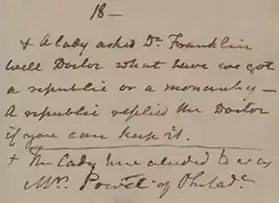 18—
+ A lady asked Dr. Franklin
well Doctor what have we got
a republic or a monarchy—
A republic replied the Doctor
if you can keep it.
+ The Lady here aluded to was
Mrs. Powel of Philada.